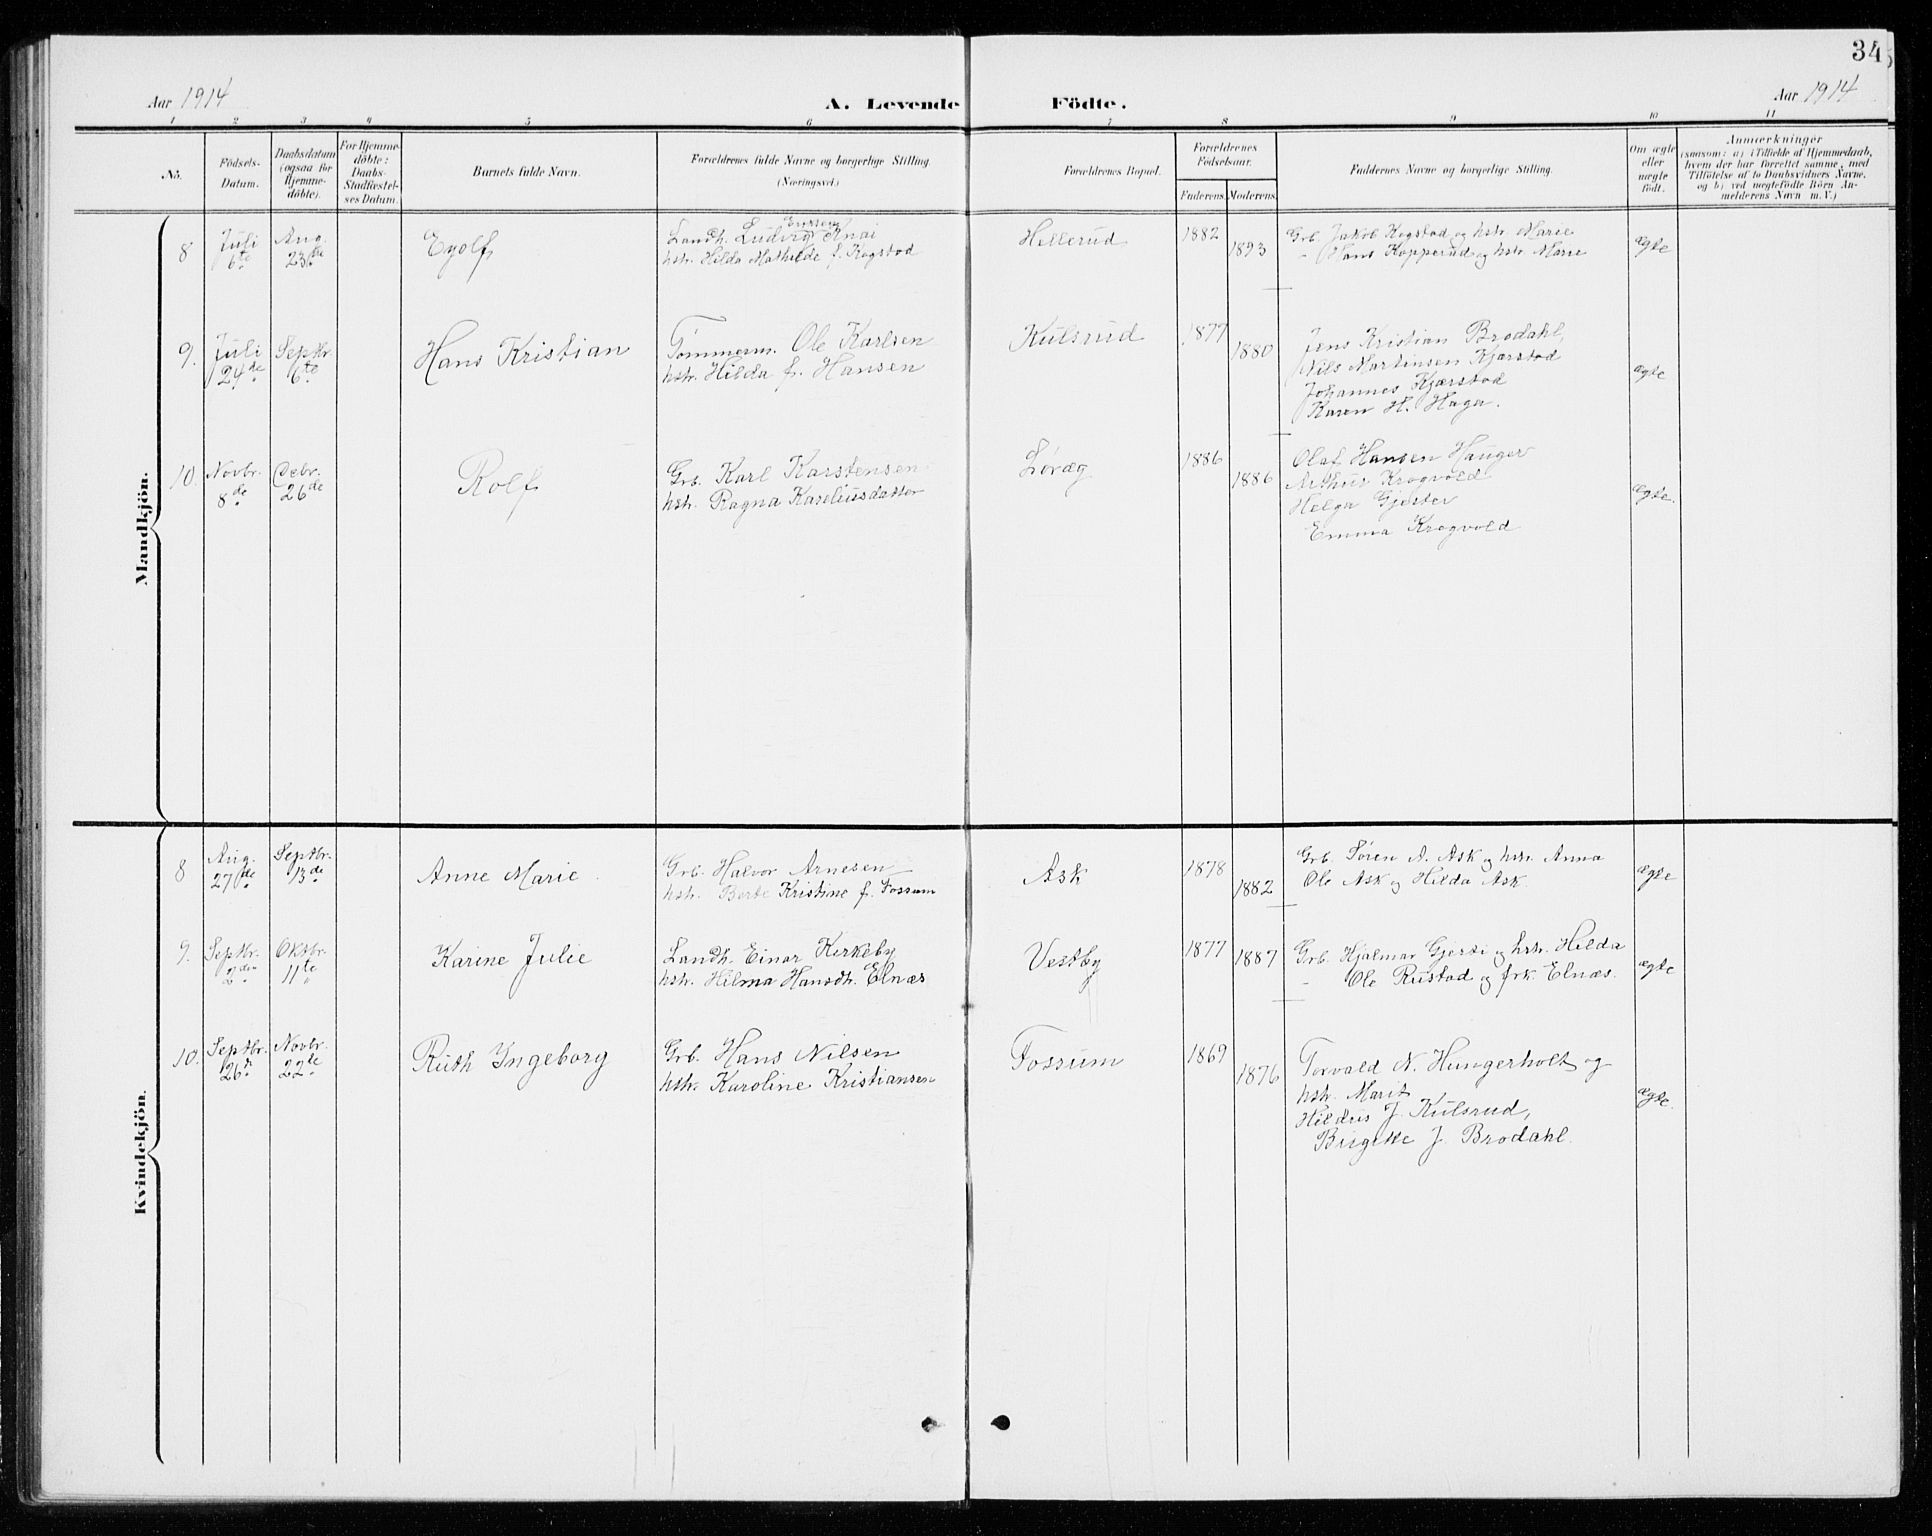 34
Aar 1914
A. Levende Födte.
Aar 1914
1 2 3 4 5 6 7 8 9 10 11
No.
Födsels-
Datum.
Daabsdatum
(ogsaa for
Hjemme-
döbte).
For Hjemme-
döbte:
Daabs-
Stadfæstel-
ses Datum.
Barnets fulde Navn.
Forældrenes fulde Navne og borgerlige Stilling.
(Næringsvei.)
Forældrenes Bopæl.
Forældrenes
Födselsaar.
Faderens. Moderens.
Faddernes Navne og borgerlige Stilling.
Om ægte
eller
uægte
födt.
Anmærkninger
(saasom: a) i Tilfælde af Hjemmedaab,
hvem der har forrettet samme, med
Tilföielse af to Daabsvidners Navne,
og b) ved uægtefödte Börn An-
melderens Navn m. V.)
Mandkjön.
8
Juli
6te
Aug.
23de
Eyolf
Landh. Ludvig
hstr. Hilda Mathilde f. Kogstad
Hellerud
1882
1893
Grb. Jakob Kogstad og hstr. Marie
- Hans Kopperud og hstr. Marie
ægte
9.
Juli
24de
Septbr.
6te
Hans Kristian
Tømmerm. Ole Karlsen
hstr. Hilda f. Hansen
Kulsrud
1877
1880
Jens Kristian Brodahl,
Nils Martinsen Kjærstad
Johannes Kjærstad
Karen H. Haga.
ægte
10.
Novbr.
8de
Debr.
26de
Rolf
Grb. Karl Karstensen
hstr. Ragna Kaseliusdatter
Løvæg
1886
1886
Olaf Hansen Hauger
Arthur Krogvold
Helga Gjester
Emma Krogvold
ægte.
Kvindekjön.
8
Aug.
27de
Septbr.
13de
Anne Marie
Grb. Halvor Arnesen
hstr. Berte Kristine f. Fossum
Ask
1878
1882
Grb. Søren A. Ask og hstr. Anna
Ole Ask og Hilda Ask.
ægte
9.
Septbr.
2den
Oktbr.
11te
Karine Julie
Landh. Einar Kirkeby
hstr. Hilma Hansdtr. Elnæs
Vestby
1877
1887
Grb. Hjalmar Gjesti og hstr. Hilda
- Ole Rustad og frk. Elnæs.
ægte
10.
Septbr.
26
Novbr.
22te
Ruth Ingeborg
Grb. Hans Nilsen
hstr. Karoline Kristiansen
Fossum
1869
1876
Torvald N. Hungerholt og
hstr. Marit
Hildus J. Kulsrud,
Birgitte J. Brodahl.
ægte.